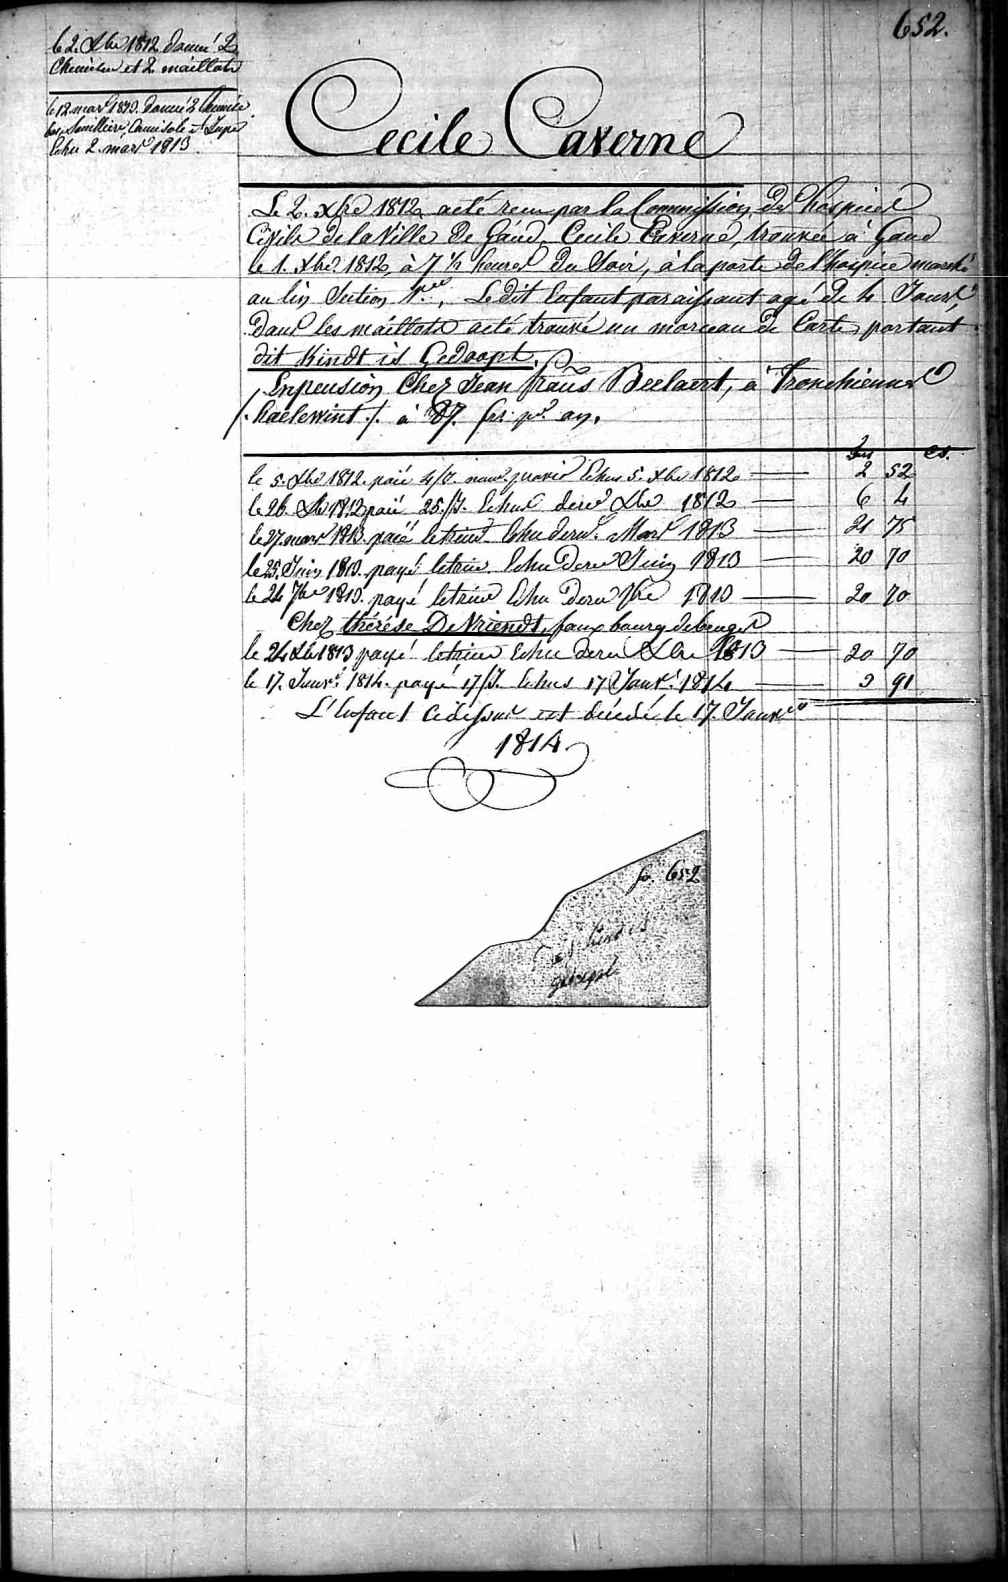 652.
le 2. Xbre 1812 donné 2
Chemises et 2 maillots
le 12 mars 1813. donné 2 Chemises
Camisole et Jupe
Echu 2. mars 1813.
Cecile Caverne
Le 2. xbre 1812 a eté recu par la Commission des hospices
Civils de la Ville de Gand, Cecile Caverne, trouvée à Gand
le 1. Xbre 1812, à 7 1/2 heures du Soir, à la porte de l'hospice marché
au lin Section 1.re, Le dit Enfant paraissant agé de 4 Jours
dans les maillots a eté trouvé un morceau de Carte, portant
dit Kindt is Gedoopt.
En pension Chez Jean frans Beelaert, à Tronchiennes
/. haelewint ./. à 87. frs. pr. an.
frs cs.
le 5. Xbre 1812. paié 4/J. Echus 5. xbre 1812 2 52
le 26 Xbre 1812 paié 25/J. Echus dere Xbre 1812 6 4
le 27 mars 1813. paié le trime Echu dere. Mars 1813 21 75
le 25. Juin 1813. payé le trime Echu dere Juin 1813 20 70
le 24 7bre 1813. payé le trime Echu dere 7bre 1813 20 70
Chez thérése De Vriendt, faux bourg de bruges
le 24 Xbre 1813 payé le trime Echu dere Xbre 1813 20 70
le 17. Janvr. 1814. payé 17/J. Echus 17 Janvr. 1814 3 91
L'Enfant Cidessus est décédé le 17. Janvier
1814.
fo. 652
dit kint is
gedoopt